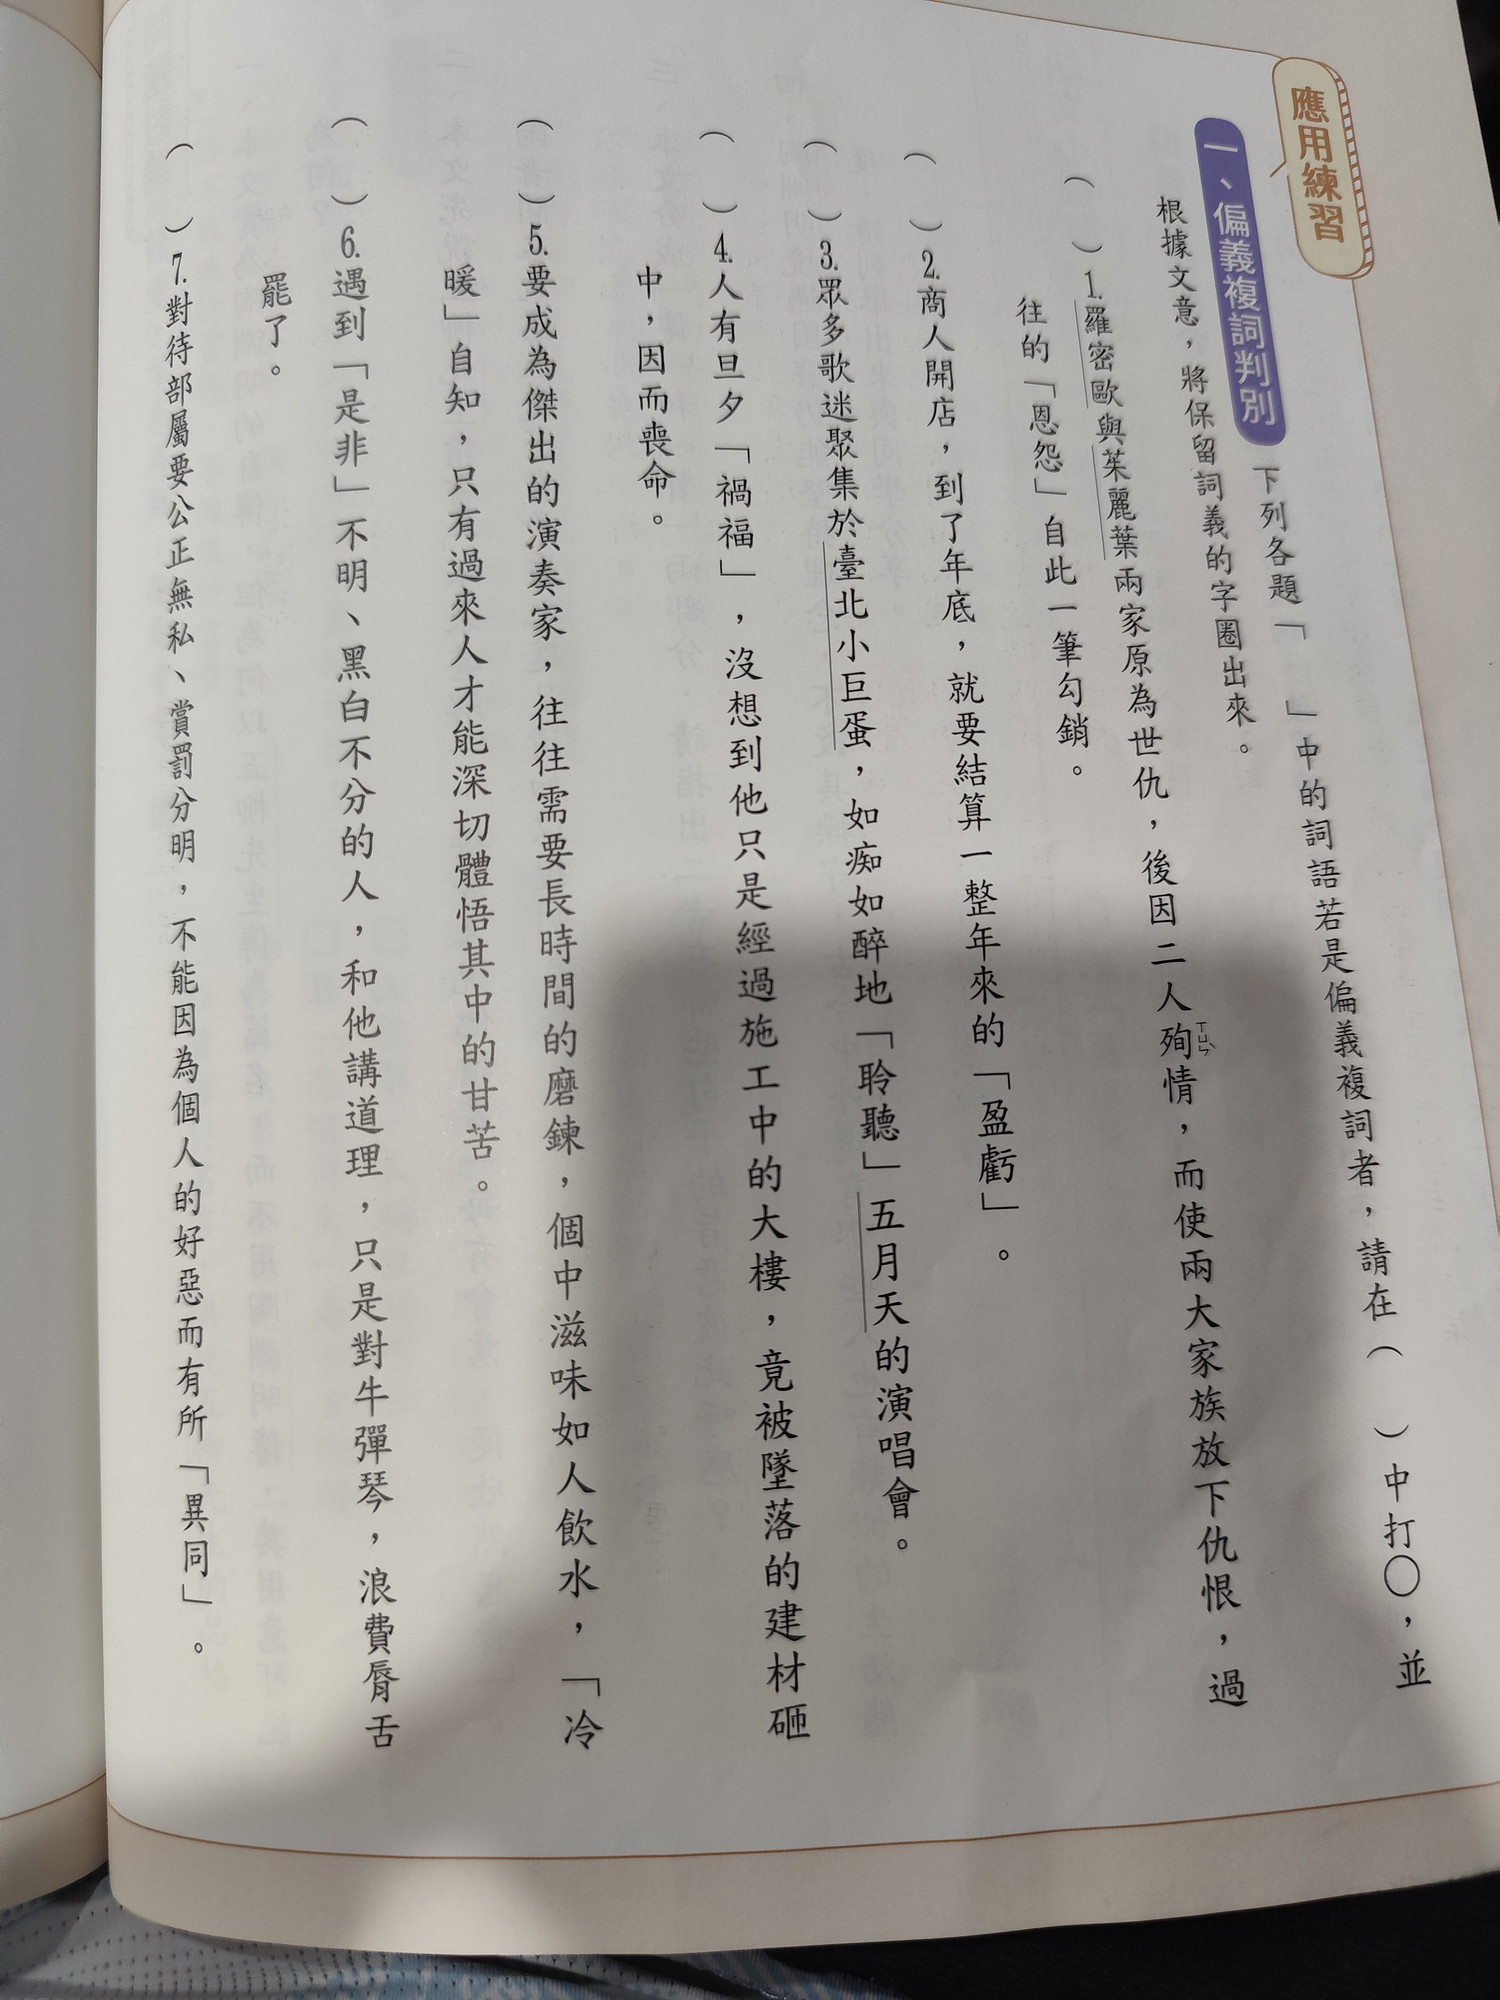 應用練習
一、偏義複詞判別
下列各題「　」中的詞語若是偏義複詞者，請在（　）中打○，並
根據文意，將保留詞義的字圈出來。
（　）1.羅密歐與茱麗葉兩家原為世仇，後因二人殉ㄒㄩㄣˋ情，而使兩大家族放下仇恨，過
往的「恩怨」自此一筆勾銷。
（　）2.商人開店，到了年底，就要結算一整年來的「盈虧」。
（　）3.眾多歌迷聚集於臺北小巨蛋，如痴如醉地「聆聽」五月天的演唱會。
（　）4.人有旦夕「禍福」，沒想到他只是經過施工中的大樓，竟被墜落的建材砸
中，因而喪命。
（　）5.要成為傑出的演奏家，往往需要長時間的磨鍊，個中滋味如人飲水，「冷
暖」自知，只有過來人才能深切體悟其中的甘苦。
（　）6.遇到「是非」不明、黑白不分的人，和他講道理，只是對牛彈琴，浪費脣舌
罷了。
（　）7.對待部屬要公正無私、賞罰分明，不能因為個人的好惡而有所「異同」。